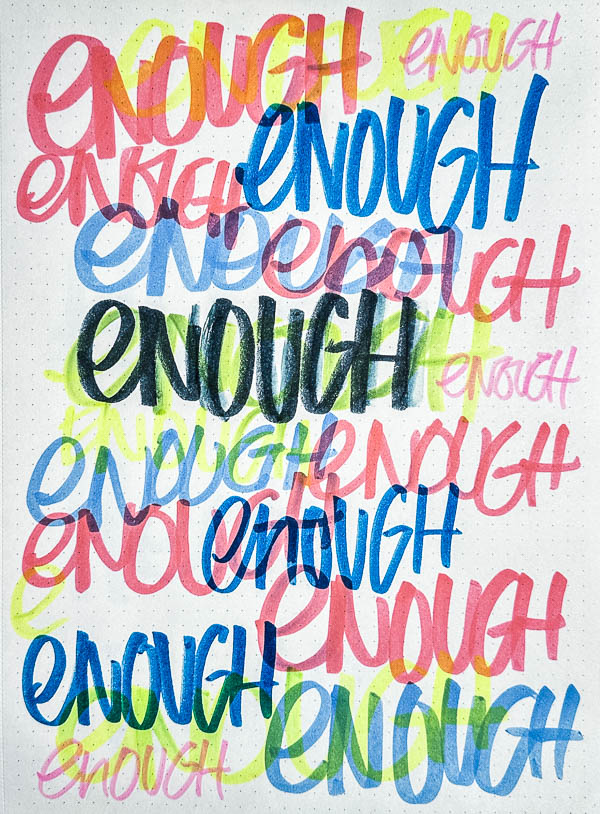 enough enough enough
enough
enough
enough enough
enough enough
enough
enough
enough enough
enough enough
enough
enough
enough enough
enough